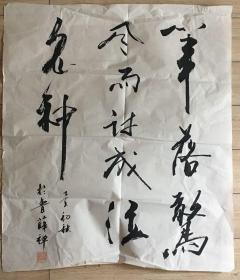 筆落驚
风雨诗成泣
鬼神
初秋